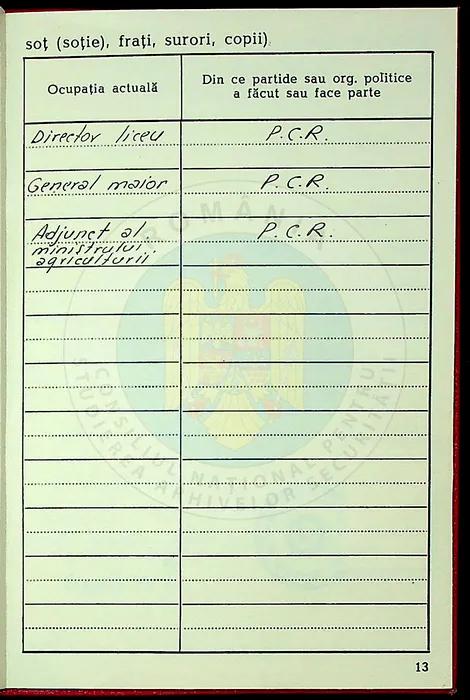 soț (soție), frați, surori, copii)
Ocupația actuală
Din ce partide sau org. politice
a făcut sau face parte
Director liceu P.C.R.
General maior P.C.R.
Adjunct al P.C.R.
ministrului
agriculturii
ROMÂNIA
CONSILIUL NAȚIONAL PENTRU
STUDIEREA ARHIVELOR SECURITĂȚII
13